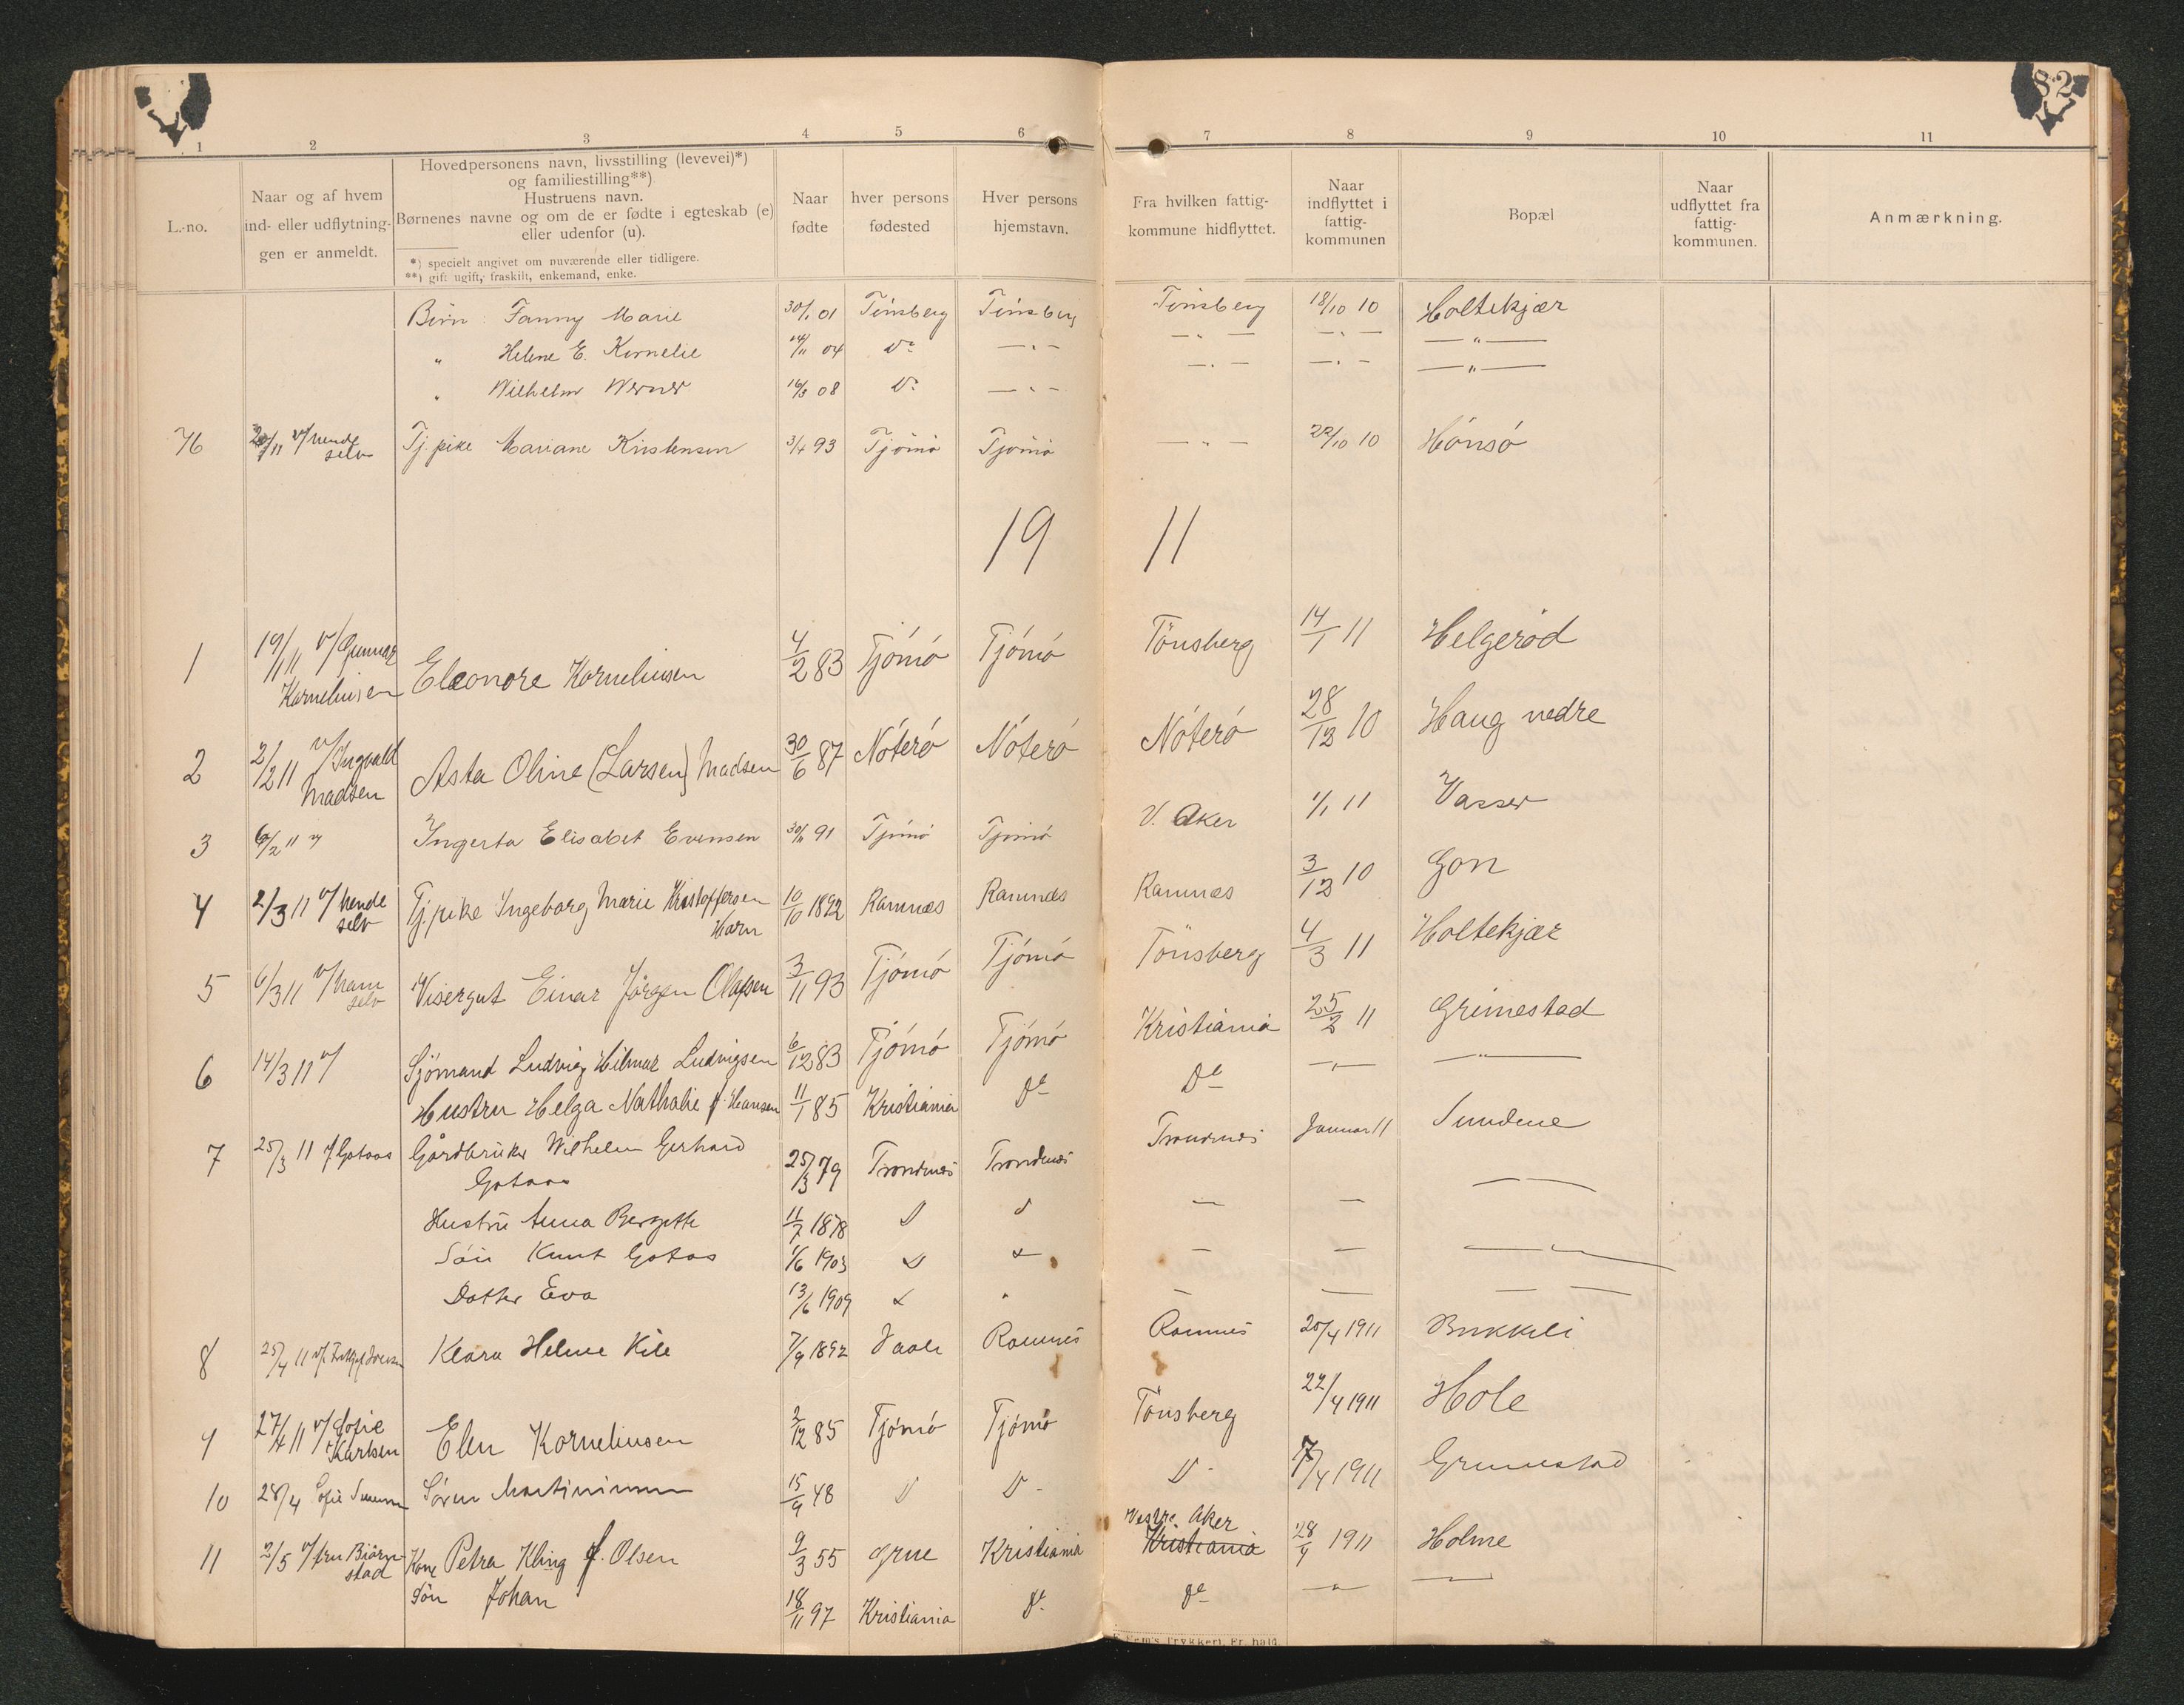 82
1 2 3 4 5 6 7 8 9 10 11
L.-no.
Naar og af hvem
ind- eller udflytnin-
gen er anmeldt.
Hovedpersonens navn, livsstilling (levevei)*)
og familiestilling**)
Hustruens navn.
Børnenes navne og om de er fødte i egteskab (e)
eller udenfor (u).
*) specielt angivet om nuværende eller tidligere.
**) gift ugift, fraskilt, enkemand, enke.
Naar
fødte
hver persons
fødested
Hver persons
hjemstavn.
Fra hvilken fattig-
kommune hidflyttet.
Naar
indflyttet i
fattig-
kommunen
Bopæl
Naar
udflyttet fra
fattig-
kommunen.
Anmærkning.
Børn Fanny Marie 30/1 01 Tönsberg Tönsberg Tönsberg 18/10 10 Holtekjær
" Helene E. Kornelie 14/11 04 Do — " — — " — — " — — " —
" Wilhelm Werner 16/3 08 Do — " — — " — — " — — " —
76 v/ hende selv Tj. pike Mariane Kristensen 3/4 93 Tjömö Tjömö — " — 22/10 10 Hönsö
19 11
1 19/1 11 v/ Gunnar Korneliusen Eleonore Korneliusen 4/2 83 Tjömö Tjömö Tönsberg 14/1 11 Helgeröd
2 2/2 11 v/ Ingvald Madsen Asta Oline (Larsen) Madsen 30/6 87 Nöterö Nöterö Nöterö 28/12 10 Haug nedre
3 6/2 11 v/ Ingerta Elisabet Evensen 30/11 91 Tjömö Tjömö V. Aker 1/1 11 Vasser
4 2/3 11 v/ hende selv Tj. pike Ingeborg Marie Kristoffersen Horn 10/10 1892 Ramnæs Ramnæs Ramnæs 3/12 10 Gon
5 6/3 11 v/ ham selv Visergut Einar Jörgen Olafsen 3/11 93 Tjömö Tjömö Tönsberg 4/3 11 Holtekjær
6 14/3 11 v/ Sjömand Ludvig Hilmar Ludvigsen 6/12 83 Tjömö Tjömö Kristiania 25/2 11 Grimestad
Hustru Helga Nathalie f. Hansen 11/1 85 Kristiania do Do — " — — " —
7 25/3 11 v/ Gotaas Gårdbruker Wilhelm Gerhard Gotaas 25/3 79 Trondenæs Trondenæs Trondenæs Januar 11 Sundene
Hustru Anna Bergette 11/7 1878 D D — — — —
Sön Knut Gotaas 1/6 1903 D D — — — —
Datter Eva 13/6 1909 D " — — — —
8 25/4 11 v/ Klara Helene Kile 7/9 1892 Vaale Ramnes Ramnes 20/4 1911 Bukkeli
9 27/4 11 v/ Sofie Karlsen Elen Korneliusen 2/12 85 Tjömö Tjömö Tönsberg 22/4 1911 Hole
10 28/4 Sofie Sören Martinsen 15/9 48 D D D 7/4 1911 Grimestad
11 2/5 v/ fru Björnstad Kone Petra Kling f. Olsen 9/3 55 Grue Kristiania Vestre Aker Kristiania 28/4 1911 Holme
Sön Johan 18/11 97 Kristiania do do — " — —